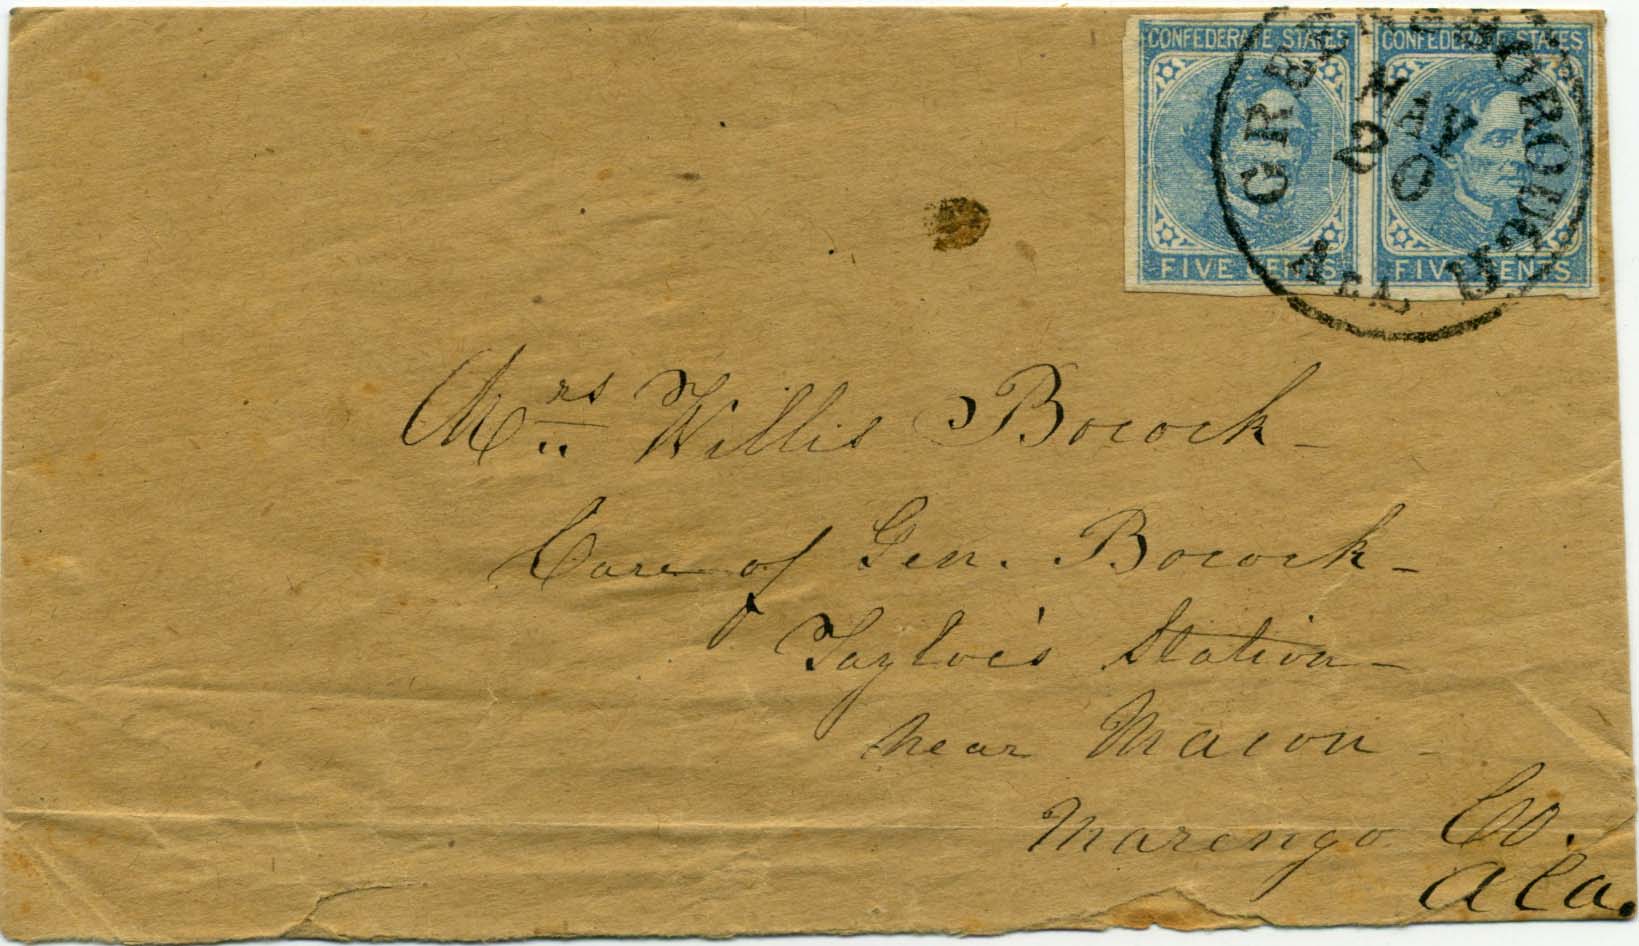 CONFEDERATE STATES CONFEDERATE STATES
FIVE CENTS FIVE CENTS
GREENSBOROUGH
MAY
20
ALA
Mrs Willis Bocock
Care of Gen. Bocock
Tayloe's Station
near Macon
Marengo Co.
Ala.